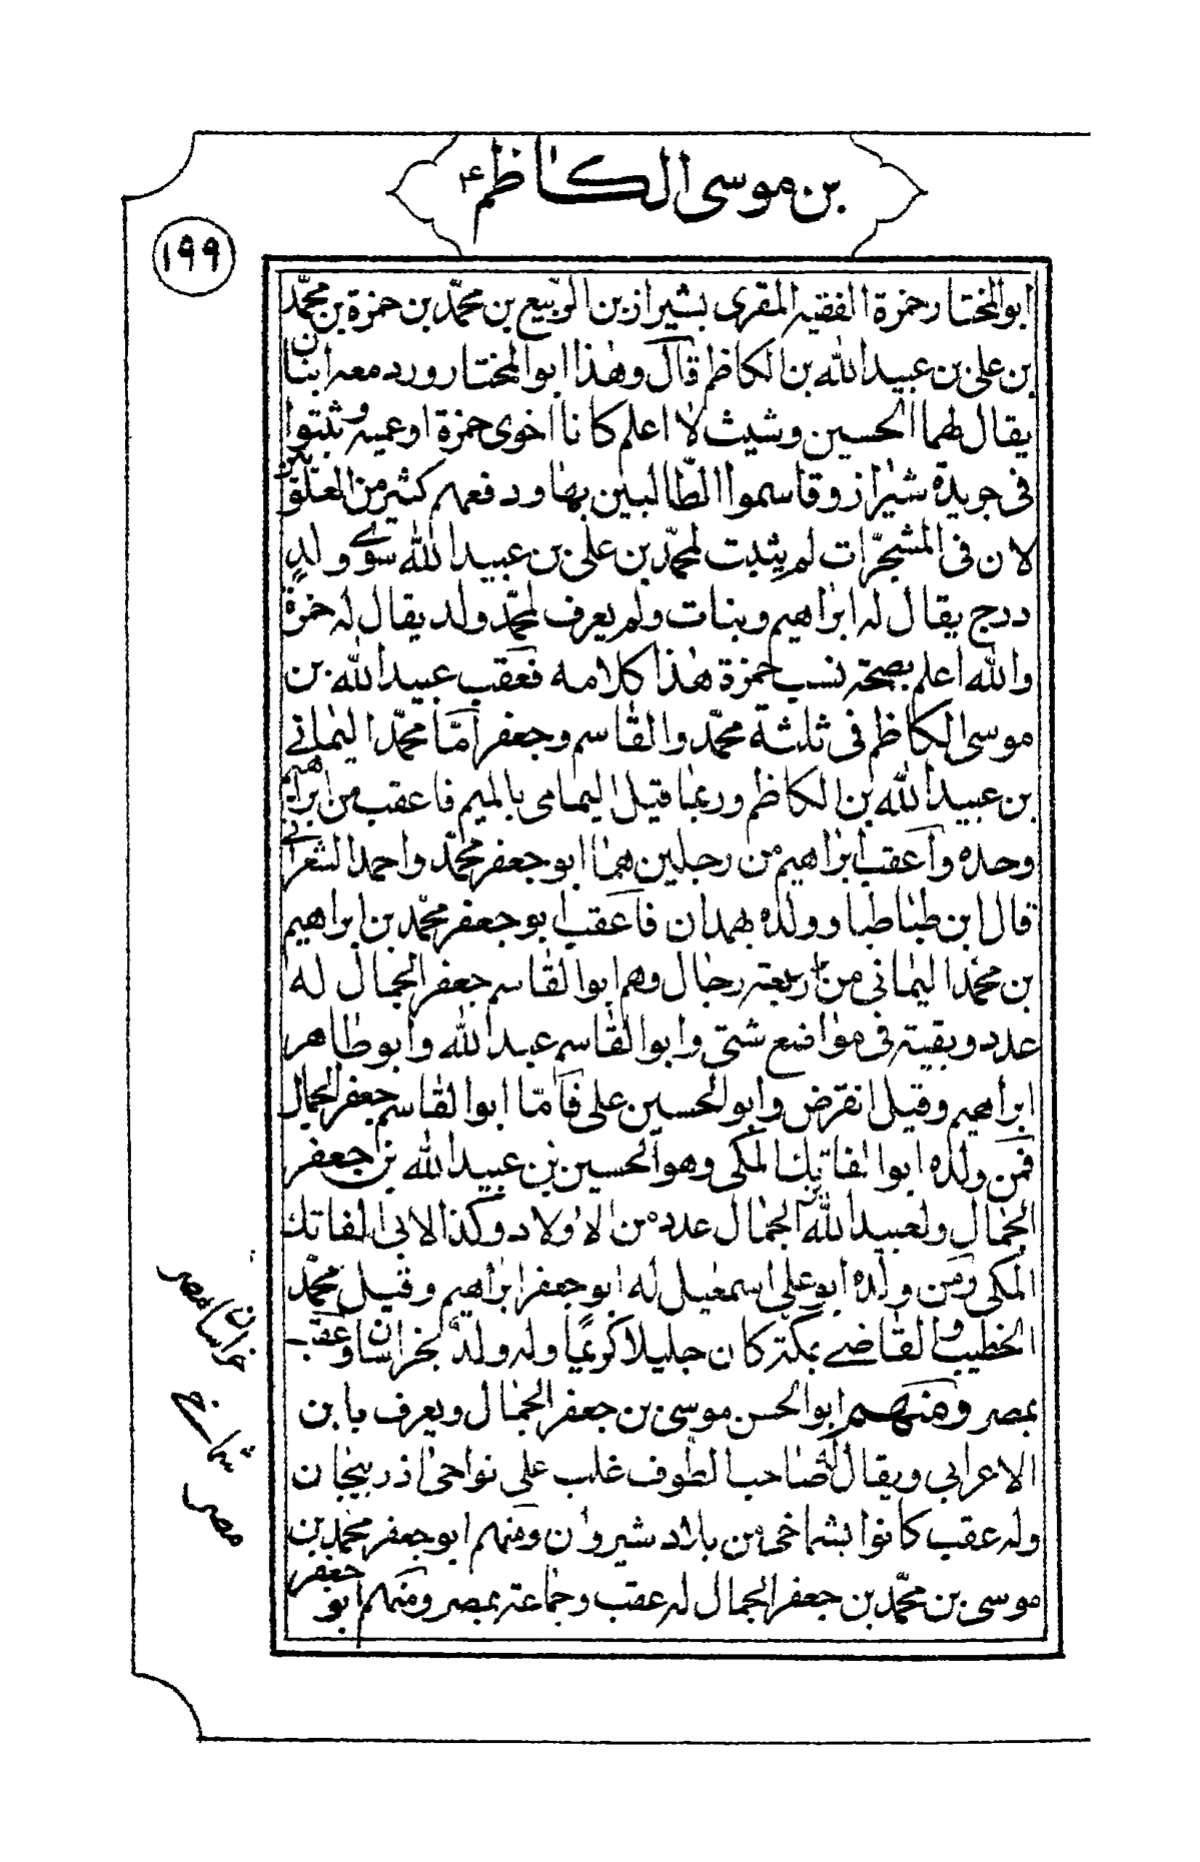 بن موسى الكاظم ع
١٩٩
ابو المختار حمزة الفقيه المقرى بشيراز بن الربيع بن محمّد بن حمزة بن محمّد
بن على بن عبيد الله بن الكاظم قال وهذا ابو المختار ورد معه ابنان
يقال لهما الحسين وشيث لا اعلم كانا اخوى حمزة او عميه وثبتوا
فى جريدة شيراز وقاسموا الطّالبيين بها ودفعهم كثير من العلويين
لان فى المشجّرات لم يثبت لمحمّد بن على بن عبيد الله سوى ولدٍ
درج يقال له ابراهيم وبنات ولم يعرف لمحمّد ولد يقال له حمزة
والله اعلم بصحة نسب حمزة هذا كلامه فعقب عبيد الله بن
موسى الكاظم فى ثلثة محمّد والقاسم وجعفر امّا محمّد اليمانى
بن عبيد الله بن الكاظم وربما قيل اليمامى بالميم فاعقب من ابراهيم
وحده واعقب ابراهيم من رجلين هما ابو جعفر محمّد واحمد الشعرانى
قال ابن طباطبا وولده بهمدان فاعقب ابو جعفر محمّد بن ابراهيم
بن محمّد اليمانى من اربعة رجال وهم ابو القاسم جعفر الجمال له
عدد وبقية فى مواضع شتى وابو القاسم عبد الله وابو طاهر
ابراهيم وقيل انقرض وابو الحسين على فامّا ابو القاسم جعفر الجمال
فمن ولده ابو الفاتك المكى وهو الحسين بن عبيد الله بن جعفر
الجمال ولعبيد الله بن الجمال عدد من الاولاد وكذا لابى الفاتك
المكى ومن ولده ابو على اسمعيل له ابو جعفر ابراهيم وقيل محمّد
الخطيب والقاضى بمكة كان جليلا كريمًا وله ولد بخراسان وعقب
بمصر ومنهم ابو الحسن موسى بن جعفر الجمال ويعرف بابن
الاعرابى ويقال له صاحب الطوف غلب على نواحى اذربيجان
وله عقب كانوا بشماخى من بلاد شيروان ومنهم ابو جعفر محمّد بن جعفر
موسى بن محمّد بن جعفر الجمال له عقب وجماعة بمصر ومنهم ابو
خراسان مصر
شماخى
مصر